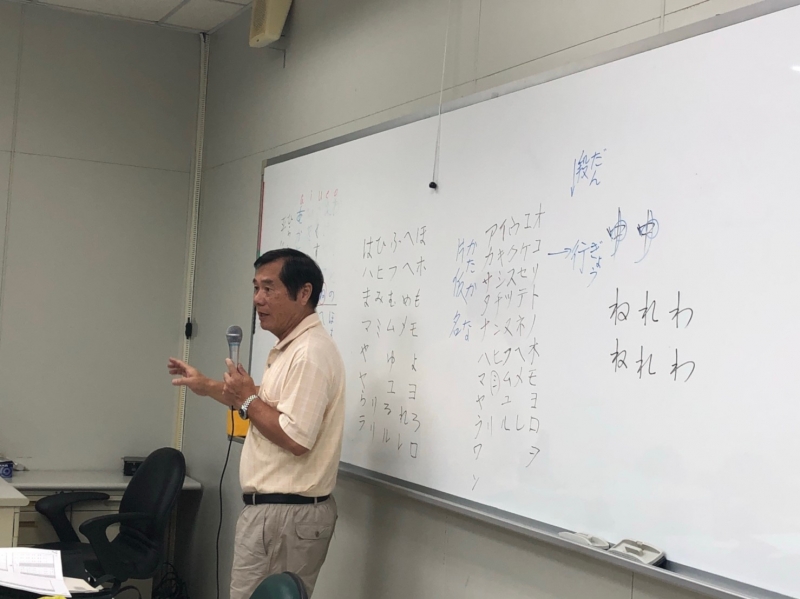 はひふへほ
ハヒフヘホ
まみむめも
マミムメモ
やゆよ
ヤユヨ
らりるれろ
ラリルレロ
片仮名
かたかな
アイウエオ
カキクケコ
サシスセソ
タチツテト
ナニヌネノ
ハヒフヘホ
マミムメモ
ヤユヨ
ラリルレロ
ワヲ
ン
段
だん
→行
ぎょう
ねれわ
ねれわ